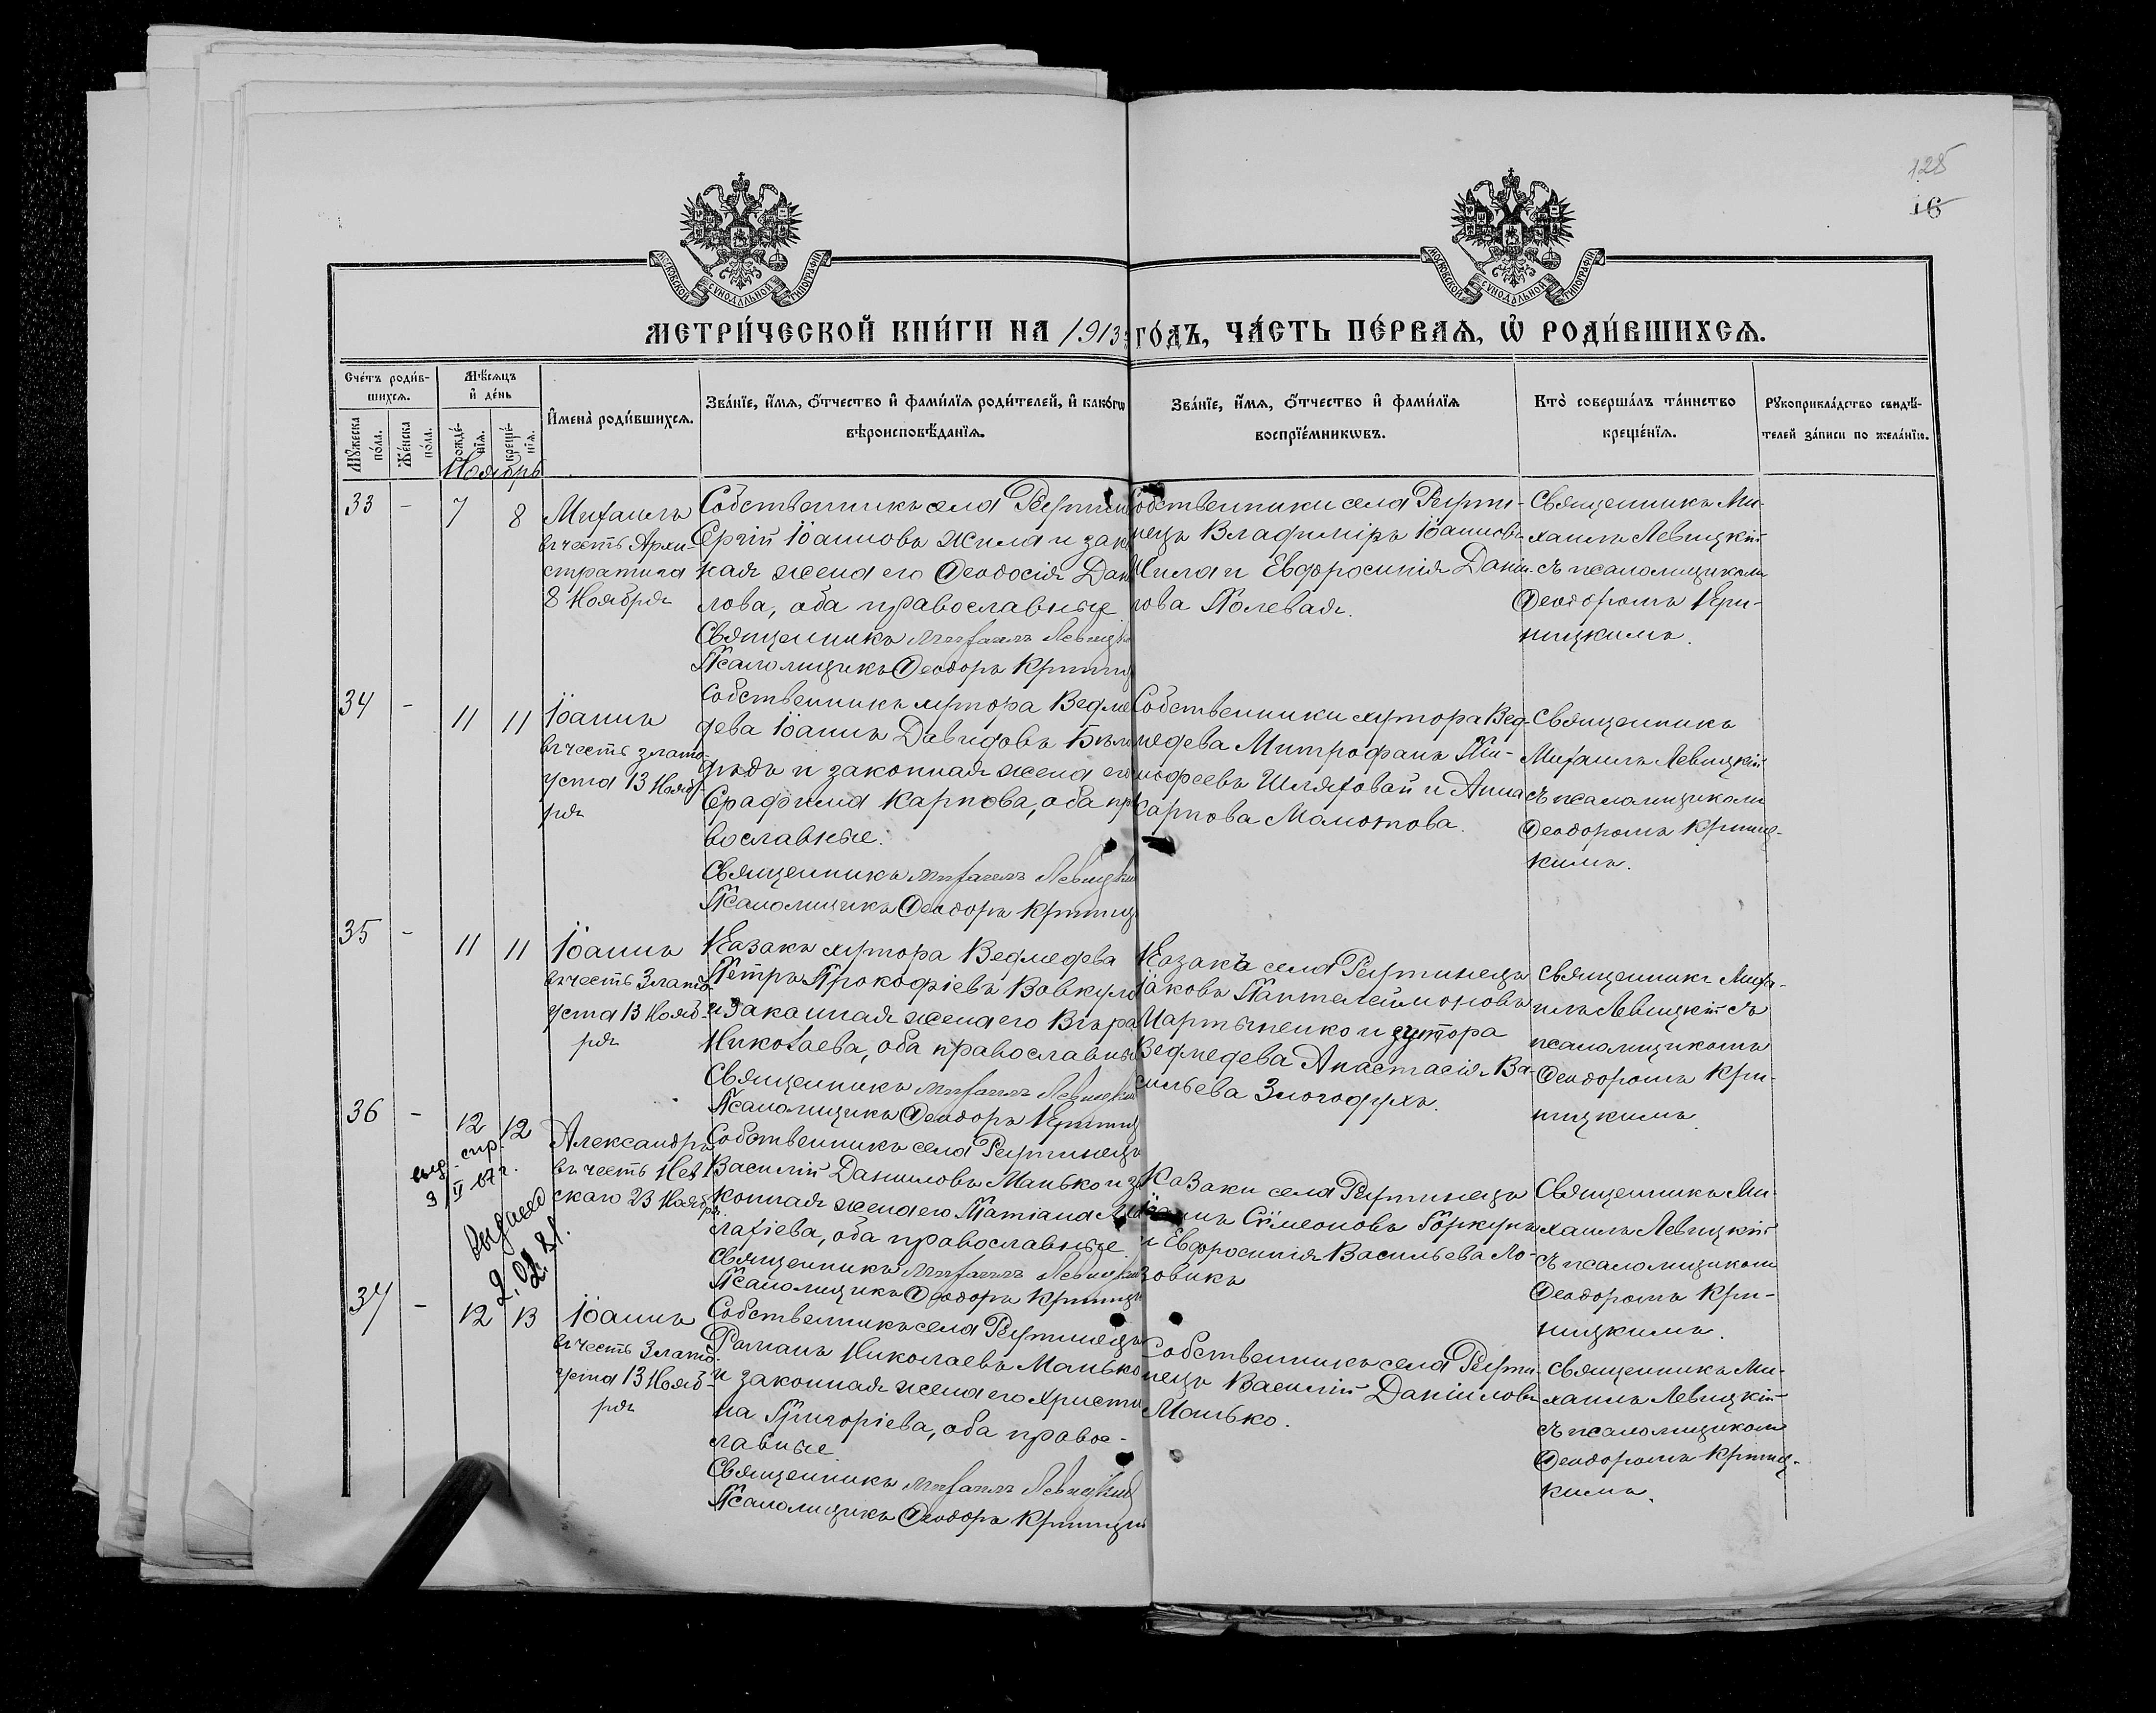 125
16
МОСКОВСКОЙ СѴНОДАЛЬНОЙ ТИПОГРАФІИ
МОСКОВСКОЙ СѴНОДАЛЬНОЙ ТИПОГРАФІИ
МЕТРИ́ЧЕСКОЙ КНИ́ГИ НА 1913 ГО́ДЪ, ЧА́СТЬ ПЕ́РВАѦ, Ѡ҆ РОДИ́ВШИХСѦ.
Сче́тъ роди́в-
шихсѧ.
Мꙋ́жеска по́ла.
Же́нска по́ла.
Мѣ́сѧцъ
и҆ де́нь
рожде́-
нїѧ.
креще́-
нїѧ.
И҆мена̀ роди́вшихсѧ.
Зва́нїе, и҆́мѧ, ѻ҆́тчество и҆ фами́лїѧ роди́телей, и҆ како́гѡ
вѣроисповѣ́данїѧ.
Зва́нїе, и҆́мѧ, ѻ҆́тчество и҆ фами́лїѧ
воспрїе́мникѡвъ.
Кто̀ соверша́лъ та́инство
креще́нїѧ.
Рꙋкоприкла́дство свидѣ́-
телей за́писи по жела́нїю.
Ноябрь
33 - 7 8
Михаилъ
въ честь Архи-
стратига
8 Ноября
Собственникъ села Реути
Сергій Іоанновъ Жила и зак
ная жена его Ѳеодосія Дан
лова, оба православные.
Священникъ Михаилъ Левицк
Псаломщикъ Ѳеодоръ Криниц
обственники села Реути-
нецъ Владиміръ Іоаннов
Жила и Евфросинія Дани-
лова Полевая.
Священникъ Ми-
хаилъ Левицкій
съ псаломщикомъ
Ѳеодоромъ Кри-
ницкимъ.
34 - 11 11
Іоаннъ
въ честь Злато-
уста 13 Нояб-
ря
Собственникъ хутора Ведме
дева Іоаннъ Давидовъ Бѣли
дѣдъ и законная жена его
Серафима Карпова, оба пр
вославные.
Священникъ Михаилъ Левицкі
Псаломщикъ Ѳеодоръ Криниц
Собственники хутора Вед-
медева Митрофанъ Ти-
мофеевъ Шляховой и Анна
Карпова Мамотова.
Священникъ
Михаилъ Левицкій
съ псаломщикомъ
Ѳеодоромъ Криниц-
кимъ.
35 - 11 11
Іоаннъ
въ честь Злато-
уста 13 Нояб-
ря
Казакъ хутора Ведмедева
Петръ Прокофіевъ Вовкуло
и законная жена его Вѣра
Николаева, оба православны
Священникъ Михаилъ Левицкі
Псаломщикъ Ѳеодоръ Криниц
Казакъ села Реутинецъ
Іаковъ Пантелеймоновъ
Мартыненко и хутора
Ведмедева Анастасія Ва-
сильева Злогодухъ.
Священникъ Миха-
илъ Левицкій съ
псаломщикомъ
Ѳеодоромъ Кри-
ницкимъ.
36 - 12 12
Александръ
въ честь Нев
скаго 23 Ноябр.
Собственникъ села Реутинецъ
Василій Даниловъ Манько и за
конная жена его Татіана Ма
лахіева, оба православные.
Священникъ Михаилъ Левицкі
Псаломщикъ Ѳеодоръ Криницк
Казаки села Реутинецъ
Іоаннъ Сѵмеоновъ Горкунъ
и Евфросинія Васильева Ло-
зовикъ
Священникъ Ми-
хаилъ Левицкій
съ псаломщикомъ
Ѳеодоромъ Кри-
ницкимъ.
спр.
3/II 67 г.
выдано
2.02.81.
37 - 12 13
Іоаннъ
въ честь Злато-
уста 13 Нояб-
ря
Собственникъ села Реутинецъ
Романъ Николаевъ Манько
и законная жена его Христи
на Григоріева, оба правос-
лавные.
Священникъ Михаилъ Левицкій
Псаломщикъ Ѳеодоръ Криницкі
Собственникъ села Реути-
нецъ Василій Даніиловъ
Манько.
Священникъ Ми-
хаилъ Левицкій
съ псаломщикомъ
Ѳеодоромъ Криниц-
кимъ.